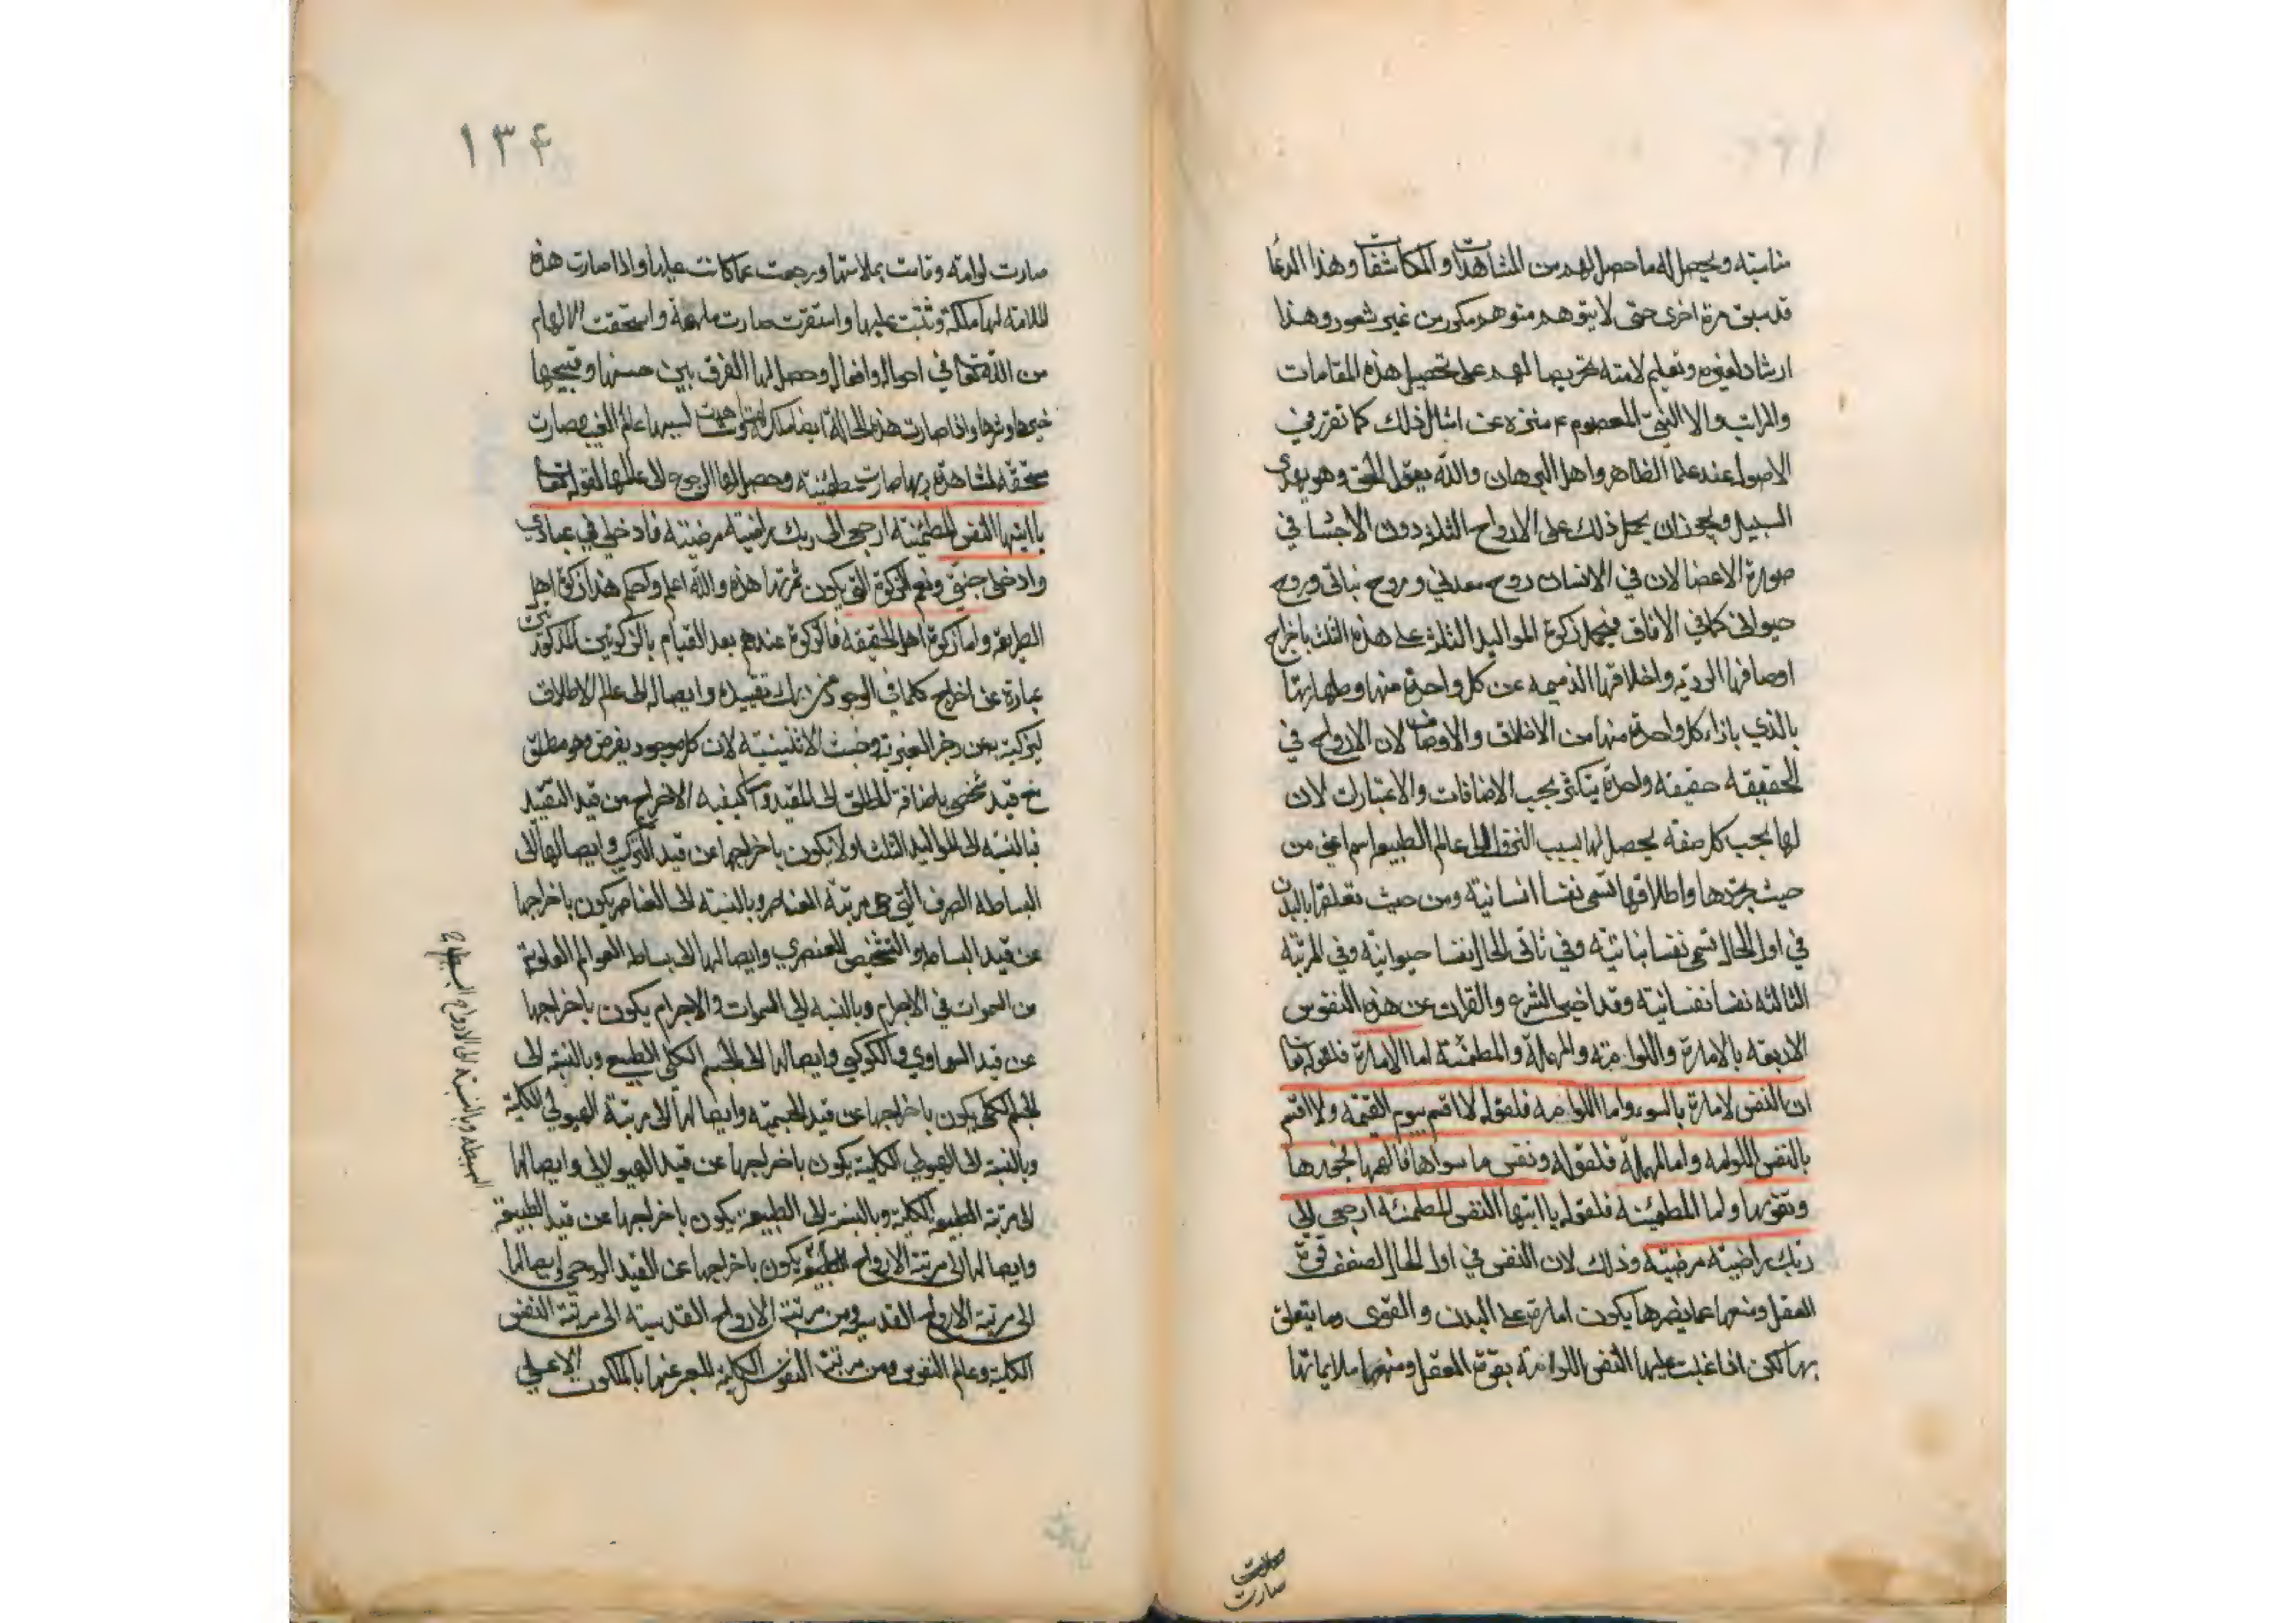 مناسبته ويحصل له ما حصل لهم من المشاهدات والمكاشفات وهذا الدعا
قد سبق مرة اخرى حتى لا يتوهم متوهم مكرر من غير شعور وهذا
ارشاد لغيره وتعليم لامته تحريصا لهم على تحصيل هذه المقامات
والمراتب والا النبي المعصوم ع منزه عن امثال ذلك كما تقرر في
الاصول عند علما الظاهر واهل البرهان والله يقول الحق وهو يهدى
السبيل ويجوز ان يحمل ذلك على الارواح الثلاثة دون الاجسا في
صورة الاعضا لان في الانسان روح معدني وروح نباتي وروح
حيواني كما في الافاق فيحمل زكوة المواليد الثلث على هذه الثلث باخراج
اوصافها الردية واخلاقها الذميمه عن كل واحدة منها وطهارتها
بالذي بازاء كل واحدة منها من الاخلاق والاوصاف لان الارواح في
الحقيقة حقيقه واحدة يتكثر بحسب الاضافات والاعتبارات لان
لها بحسب كل صفه يحصل لها بسبب النزول الى عالم الطبيعه اسم اعني من
حيث تجردها واطلاقها تسمى نفسا انسانية ومن حيث تعلقها بالبدن
في اول الحال تسمى نفسا نباتية وفي ثاني الحال نفسا حيوانية وفي المرتبة
الثالثه نفسا نفسانية وقد اخبر الشرع والقران عن هذه النفوس
الاربعه بالامارة واللوامة والملهمة والمطمئنة اما الامارة فلقوله تعا
ان النفس لامارة بالسوء واما اللوامه فلقوله لا اقسم بيوم القيمه ولا اقسم
بالنفس اللوامه واما الملهمة فلقوله ونفس ما سواها فالهمها فجورها
وتقويها واما المطمئنة فلقوله يا ايتها النفس المطمئنة ارجعي الى
ربك راضية مرضية وذلك لان النفس في اول الحال لضعف قوة
العقل ومنعها عما يضرها يكون امارة على البدن والقوى وما يتعلق
بها لكن اذا غلبت عليها النفس اللوامة بقوة العقل ومنعها ملايماتها
صارت
صارت
١٣۴
صارت لوامة وتابت بملامتها ورجعت عما كانت عليها واذا صارت هذه
الملامة لها ملكة وثبتت عليها واستقرت صارت ملهمة واستحقت الالهام
من الله تعالى في احواله وافعاله وحصل لها الفرق بين حسنها وقبيحها
خيرها وشرها واذا صارت هذه الحالة ايضا ملكة لها وشاهدت بسببها عالم الغيب صارت
مستحقه لمشاهدة ربها صارت مطمئنة وحصل لها الرجوع الى عالمها لقوله تعا
يا ايتها النفس المطمئنة ارجعي الى ربك راضية مرضية فادخلي في عبادي
وادخلي جنتي ونعم الزكوة التي يكون ثمرتها هذه والله اعلم واحكم هذا زكوة اهل
الطريقه واما زكوة اهل الحقيقه فالزكوة عندهم بعد القيام بالزكوتين المذكورتين
عبارة عن اخراج كلما في الوجود من تقييده وايصاله الى عالم الاطلاق
لتزكيته عن رجز الغيرية وخبث الاثنينية لان كل موجود يفرض وهو مطلق
مع قيد تخصى باضافة المطلق الى المقيد واما كيفيه الاخراج من قيد التقييد
فبالنسبة الى المواليد الثلث اولا يكون باخراجها عن قيد التركيب وايصالها الى
البساطه الصرف التي هي مرتبة العناصر وبالنسبة الى العناصر يكون باخراجها
عن قيد البساطه والتشخيص العنصري وايصالها الى بساطه العوالم العلوية
من السموات في الاجرام وبالنسبه الى السموات والاجرام يكون باخراجها
عن قيد السماوي والكوكبي وايصالها الى الجسم الكلي الطبيع وبالنسبة الى
الجسم الكلى يكون باخراجها عن قيد الجسمية وايصالها الى مرتبة الهيولي الكلية
وبالنسبة الى الهيولي الكلية يكون باخراجها عن قيد الهيولاني وايصالها
الى مرتبة الطبيعه الكلية وبالنسبة الى الطبيعه يكون باخراجها عن قيد الطبيعه
وايصالها الى مرتبة الارواح يكون باخراجها عن القيد الروحي وايصالها
الى مرتبة الارواح القدسيه ومن مرتبة الارواح القدسية الى مرتبة النفس
الكلية وعالم النفوس ومن مرتبة النفوس الكلية المعبر عنها بالملكوت الاعلى
البسيطه وبالنسبة الى الارواح البسيطه